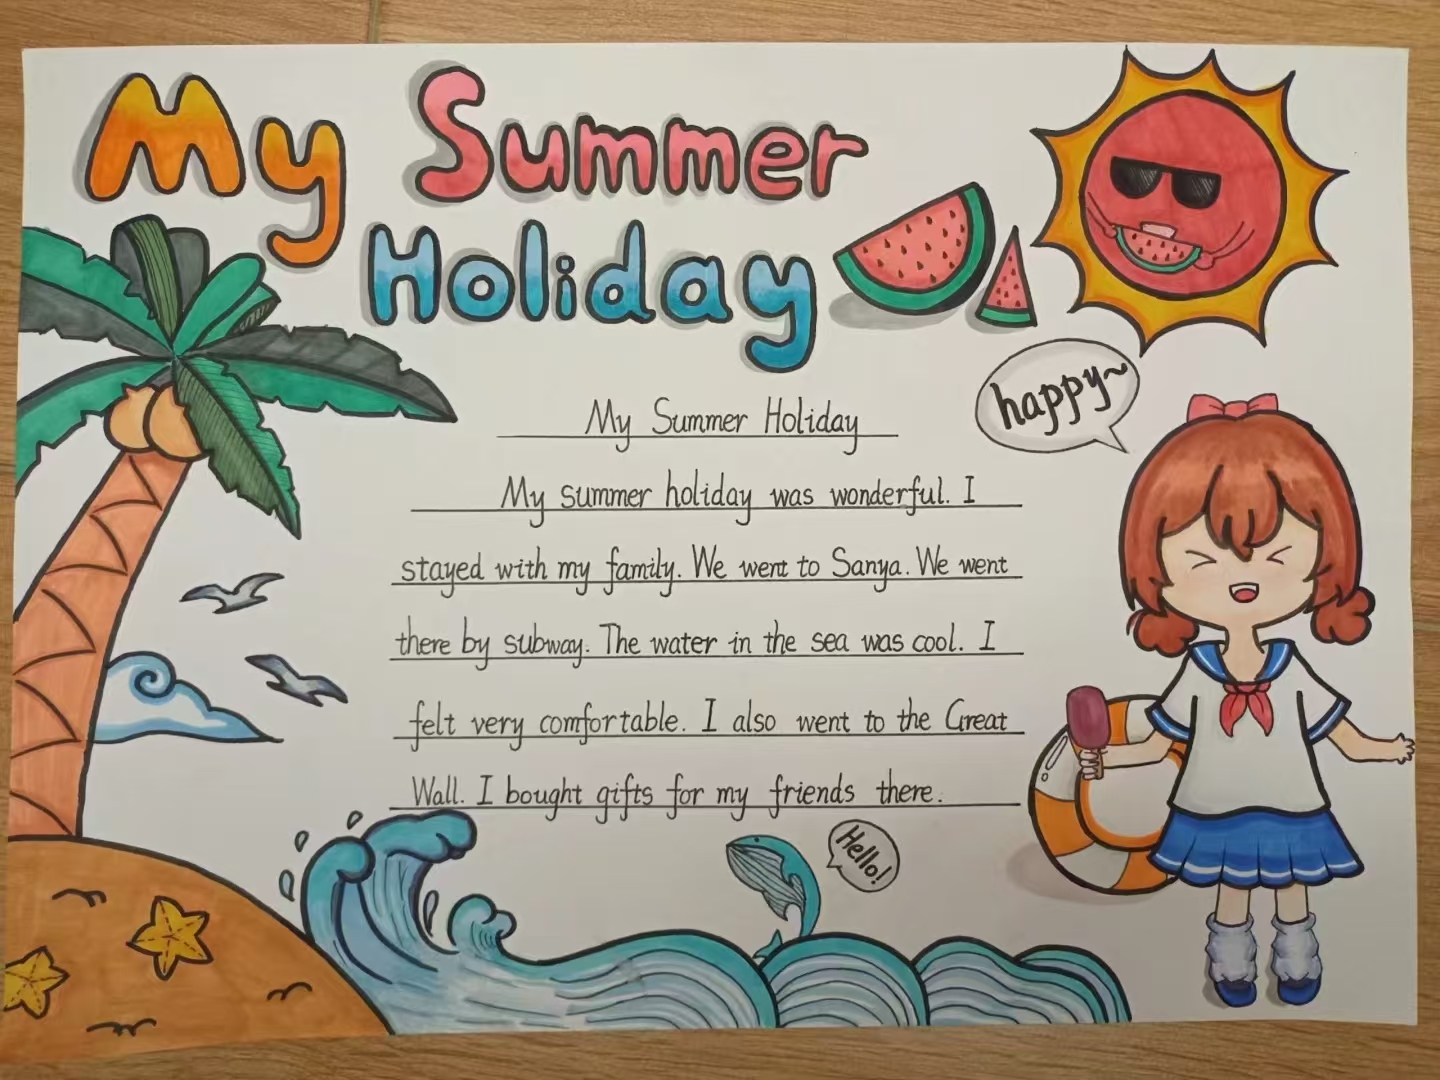 My Summer
Holiday
happy~
My Summer Holiday
My summer holiday was wonderful. I
stayed with my family. We went to Sanya. We went
there by subway. The water in the sea was cool. I
felt very comfortable. I also went to the Great
Wall. I bought gifts for my friends there.
Hello!